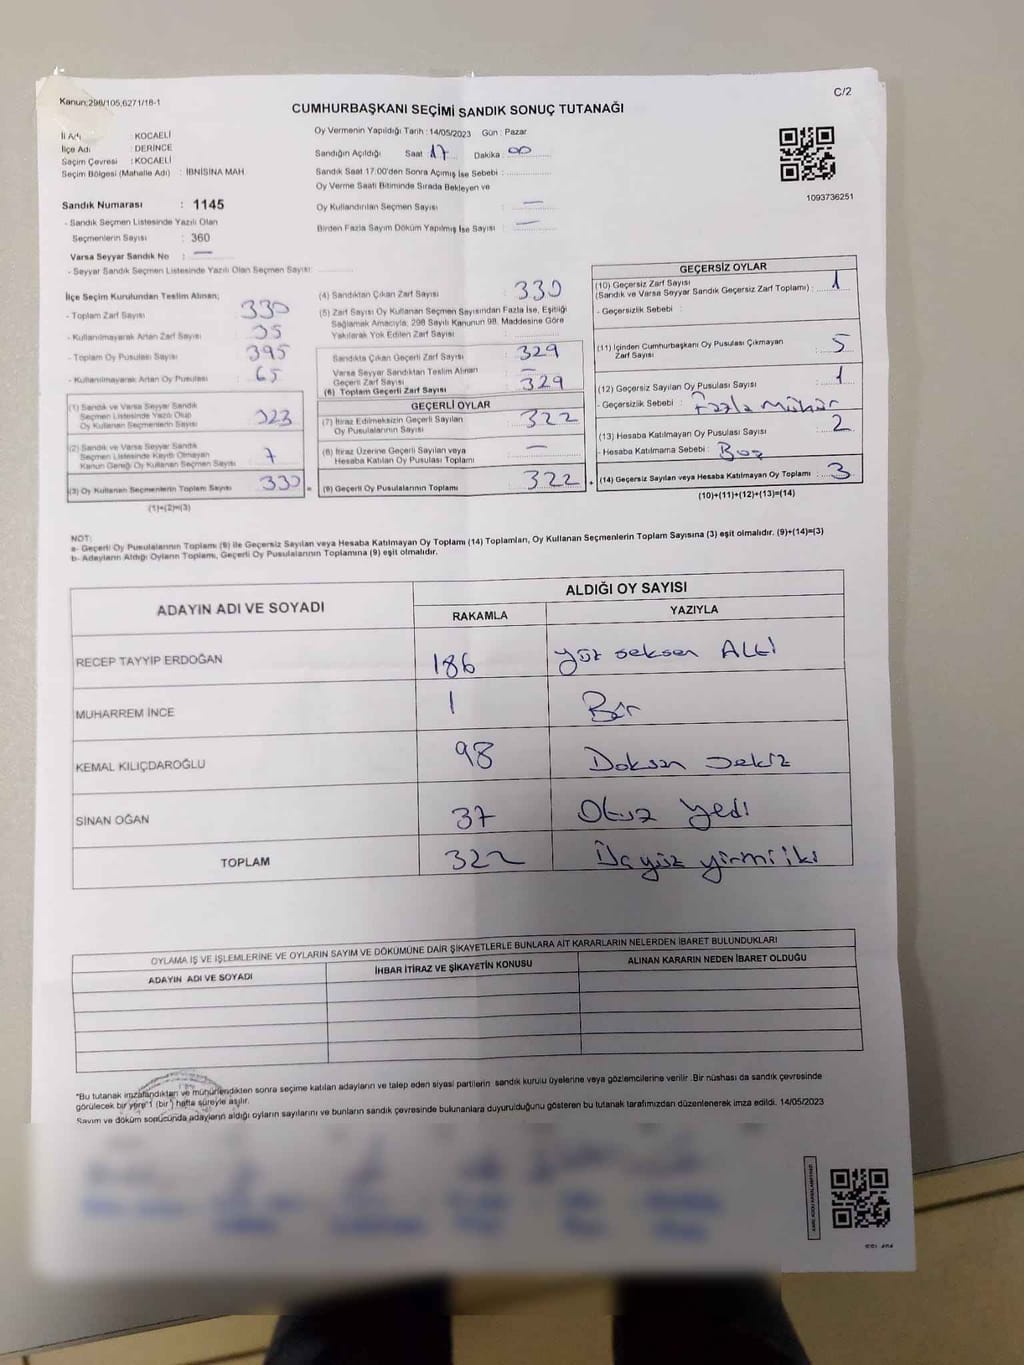 Kanun;298/105,6271/18-1
C/2
CUMHURBAŞKANI SEÇİMİ SANDIK SONUÇ TUTANAĞI
İl Adı : KOCAELİ
İlçe Adı : DERİNCE
Seçim Çevresi : KOCAELİ
Seçim Bölgesi (Mahalle Adı) : İBNİSİNA MAH.
Sandık Numarası : 1145
- Sandık Seçmen Listesinde Yazılı Olan
Seçmenlerin Sayısı : 360
Varsa Seyyar Sandık No : —
- Seyyar Sandık Seçmen Listesinde Yazılı Olan Seçmen Sayısı:
Oy Vermenin Yapıldığı Tarih : 14/05/2023 Gün : Pazar
Sandığın Açıldığı Saat 17 Dakika : 00
Sandık Saat 17:00'den Sonra Açılmış İse Sebebi :
Oy Verme Saati Bitiminde Sırada Bekleyen ve
Oy Kullandırılan Seçmen Sayısı : —
Birden Fazla Sayım Döküm Yapılmış İse Sayısı : —
1093736251
İlçe Seçim Kurulundan Teslim Alınan;
- Toplam Zarf Sayısı : 330
- Kullanılmayarak Artan Zarf Sayısı : 35
- Toplam Oy Pusulası Sayısı : 395
- Kullanılmayarak Artan Oy Pusulası : 65
(1) Sandık ve Varsa Seyyar Sandık
Seçmen Listesinde Yazılı Olup
Oy Kullanan Seçmenlerin Sayısı : 323
(2) Sandık ve Varsa Seyyar Sandık
Seçmen Listesinde Kayıtlı Olmayan
Kanun Gereği Oy Kullanan Seçmen Sayısı : 7
(3) Oy Kullanan Seçmenlerin Toplam Sayısı : 330 =
(1)+(2)=(3)
(4) Sandıktan Çıkan Zarf Sayısı : 330
(5) Zarf Sayısı Oy Kullanan Seçmen Sayısından Fazla İse, Eşitliği
Sağlamak Amacıyla, 298 Sayılı Kanunun 98. Maddesine Göre
Yakılarak Yok Edilen Zarf Sayısı :
Sandıkta Çıkan Geçerli Zarf Sayısı : 329
Varsa Seyyar Sandıktan Teslim Alınan
Geçerli Zarf Sayısı : —
(6) Toplam Geçerli Zarf Sayısı : 329
GEÇERLİ OYLAR
(7) İtiraz Edilmeksizin Geçerli Sayılan
Oy Pusulalarının Sayısı : 322
(8) İtiraz Üzerine Geçerli Sayılan veya
Hesaba Katılan Oy Pusulası Toplamı : —
(9) Geçerli Oy Pusulalarının Toplamı : 322 +
GEÇERSİZ OYLAR
(10) Geçersiz Zarf Sayısı
(Sandık ve Varsa Seyyar Sandık Geçersiz Zarf Toplamı) : 1
- Geçersizlik Sebebi :
(11) İçinden Cumhurbaşkanı Oy Pusulası Çıkmayan
Zarf Sayısı : 5
(12) Geçersiz Sayılan Oy Pusulası Sayısı : 1
- Geçersizlik Sebebi : Fazla Mühür
(13) Hesaba Katılmayan Oy Pusulası Sayısı : 2
- Hesaba Katılmama Sebebi : Boş
(14) Geçersiz Sayılan veya Hesaba Katılmayan Oy Toplamı : 3
(10)+(11)+(12)+(13)=(14)
NOT:
a- Geçerli Oy Pusulalarının Toplamı (9) ile Geçersiz Sayılan veya Hesaba Katılmayan Oy Toplamı (14) Toplamları, Oy Kullanan Seçmenlerin Toplam Sayısına (3) eşit olmalıdır. (9)+(14)=(3)
b- Adayların Aldığı Oyların Toplamı, Geçerli Oy Pusulalarının Toplamına (9) eşit olmalıdır.
ADAYIN ADI VE SOYADI
ALDIĞI OY SAYISI
RAKAMLA YAZIYLA
RECEP TAYYİP ERDOĞAN 186 yüz seksen Altı
MUHARREM İNCE 1 Bir
KEMAL KILIÇDAROĞLU 98 Doksan sekiz
SİNAN OĞAN 37 Otuz yedi
TOPLAM 322 Üçyüz yirmi iki
OYLAMA İŞ VE İŞLEMLERİNE VE OYLARIN SAYIM VE DÖKÜMÜNE DAİR ŞİKAYETLERLE BUNLARA AİT KARARLARIN NELERDEN İBARET BULUNDUKLARI
ADAYIN ADI VE SOYADI İHBAR İTİRAZ VE ŞİKAYETİN KONUSU ALINAN KARARIN NEDEN İBARET OLDUĞU
*Bu tutanak imzalandıktan ve mühürlendikten sonra seçime katılan adayların ve talep eden siyasi partilerin sandık kurulu üyelerine veya gözlemcilerine verilir .Bir nüshası da sandık çevresinde
görülecek bir yere 1 (bir ) hafta süreyle asılır.
Sayım ve döküm sonucunda adayların aldığı oyların sayılarını ve bunların sandık çevresinde bulunanlara duyurulduğunu gösteren bu tutanak tarafımızdan düzenlenerek imza edildi. 14/05/2023